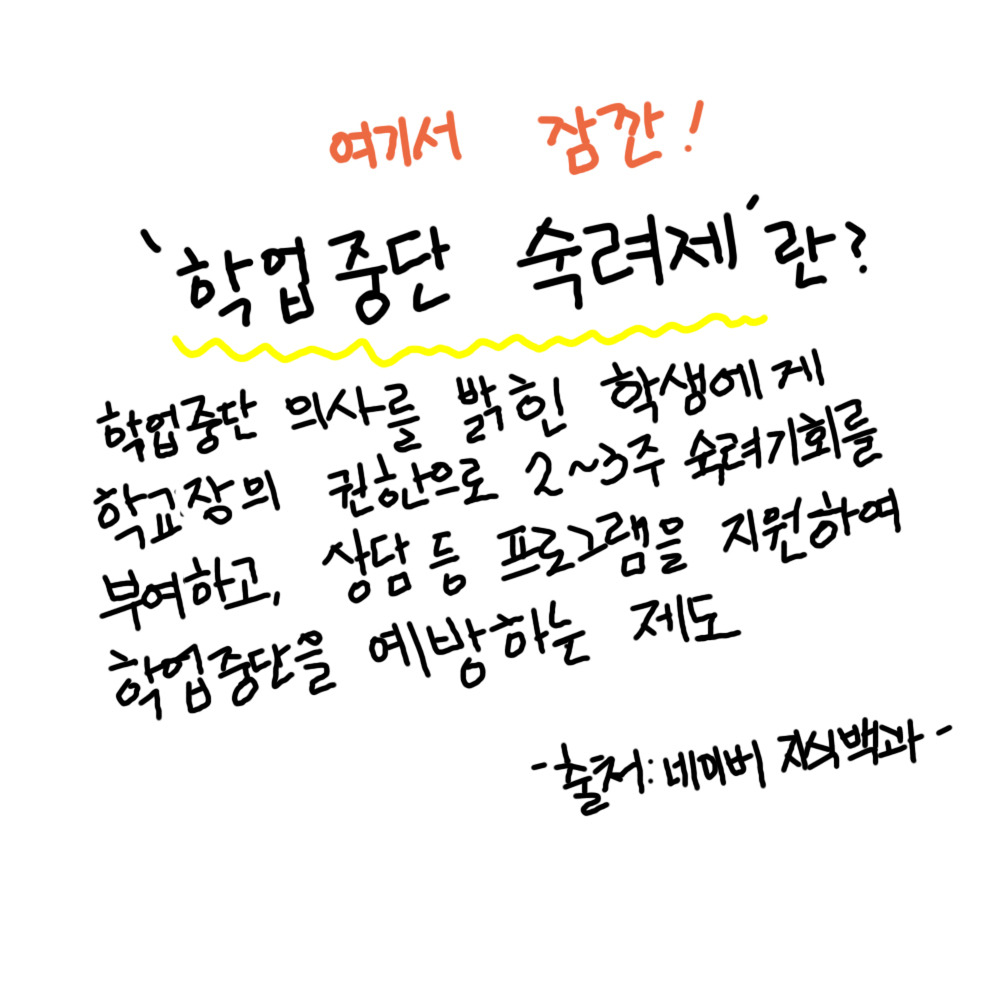 여기서 잠깐!
'학업중단 숙려제'란?
학업중단 의사를 밝힌 학생에게
학교장의 권한으로 2~3주 숙려기회를
부여하고, 상담 등 프로그램을 지원하여
학업중단을 예방하는 제도
-출처: 네이버 지식백과-